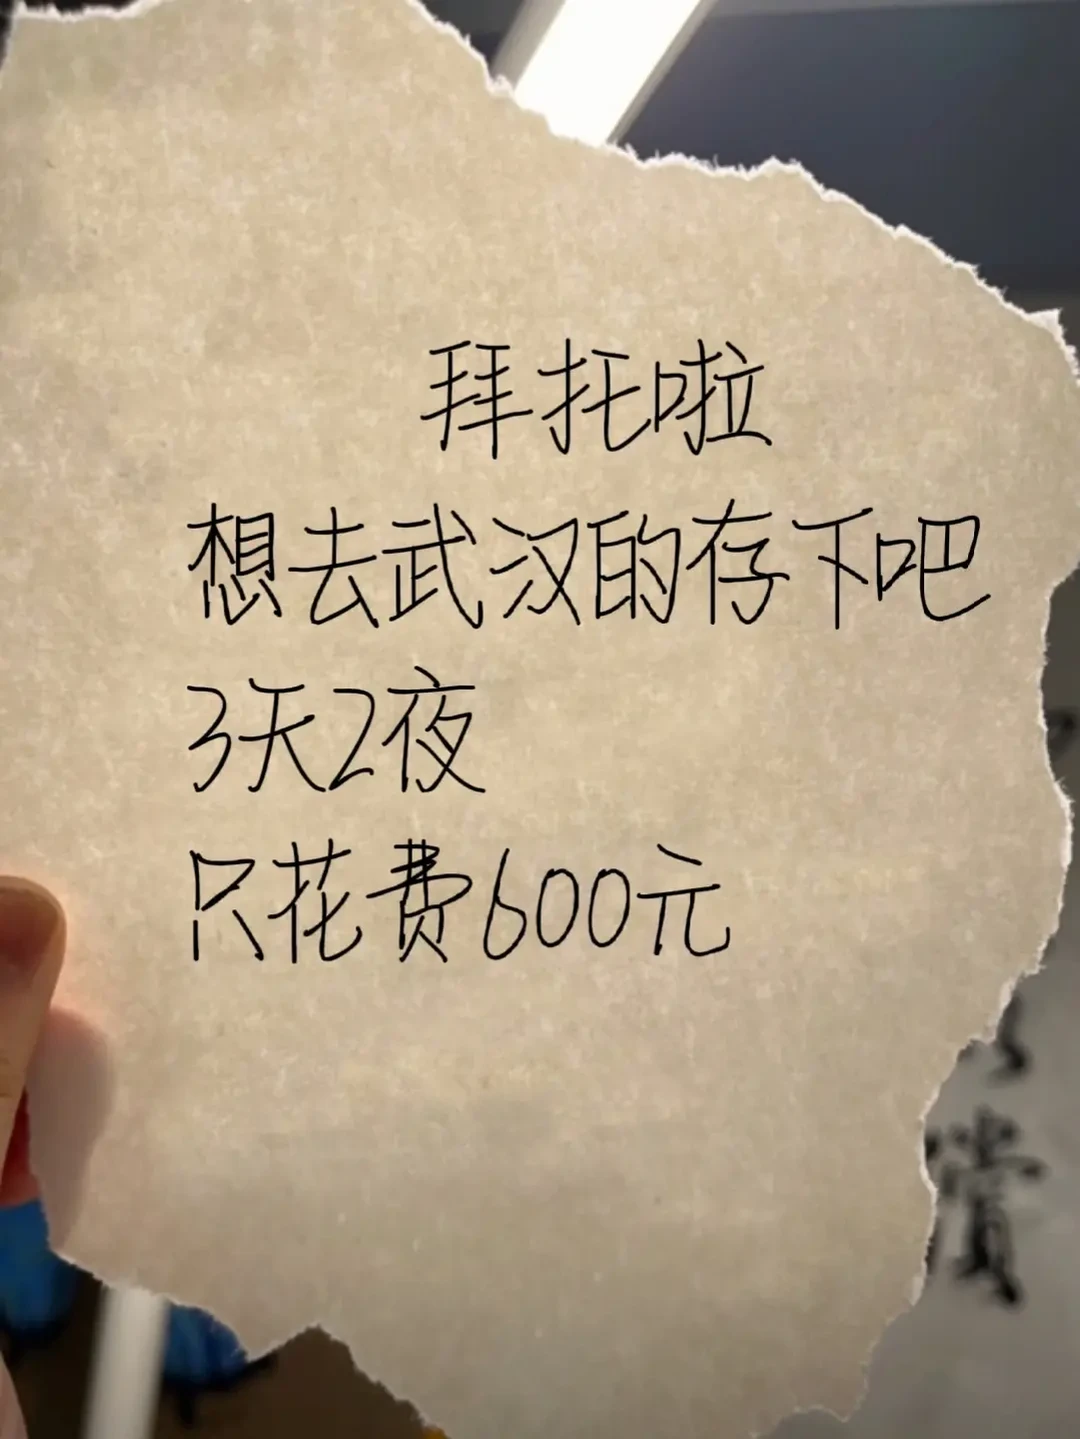 拜托啦
想去武汉的存下吧
3天2夜
只花费600元
赏